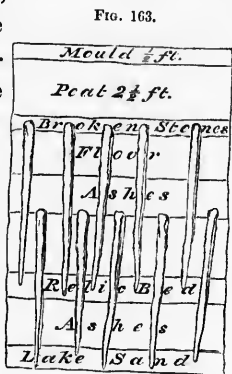 FIG. 163.
Mould ½ ft.
Peat 2½ ft.
Broken Stones
Floor
Ashes
Relic Bed
Ashes
Lake Sand